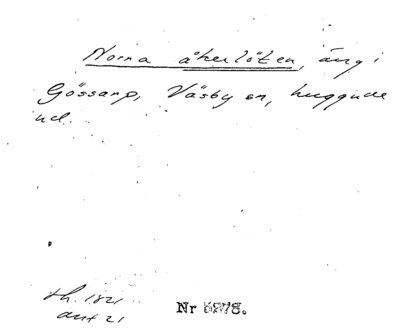 Norra åkerlöten, äng i
Gössarp, Väsby sn, Luggude
hd.
sk. 1821
akt 21
Nr 5278.